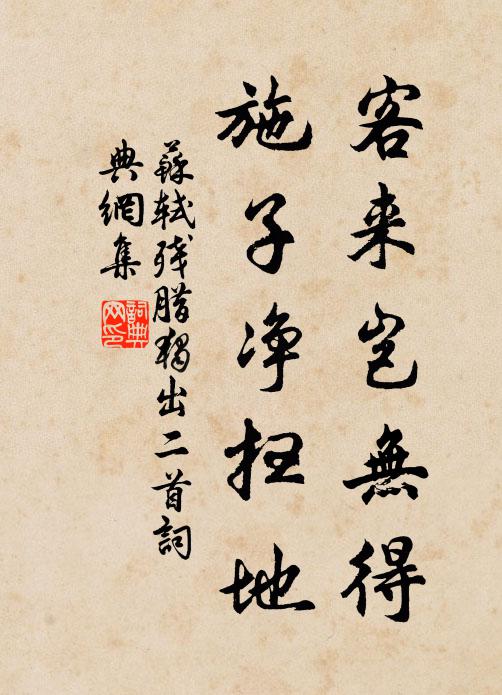 客来岂無得
施子净扫地
蘇轼残腊獨出二首詞
典網集
詞典
网印